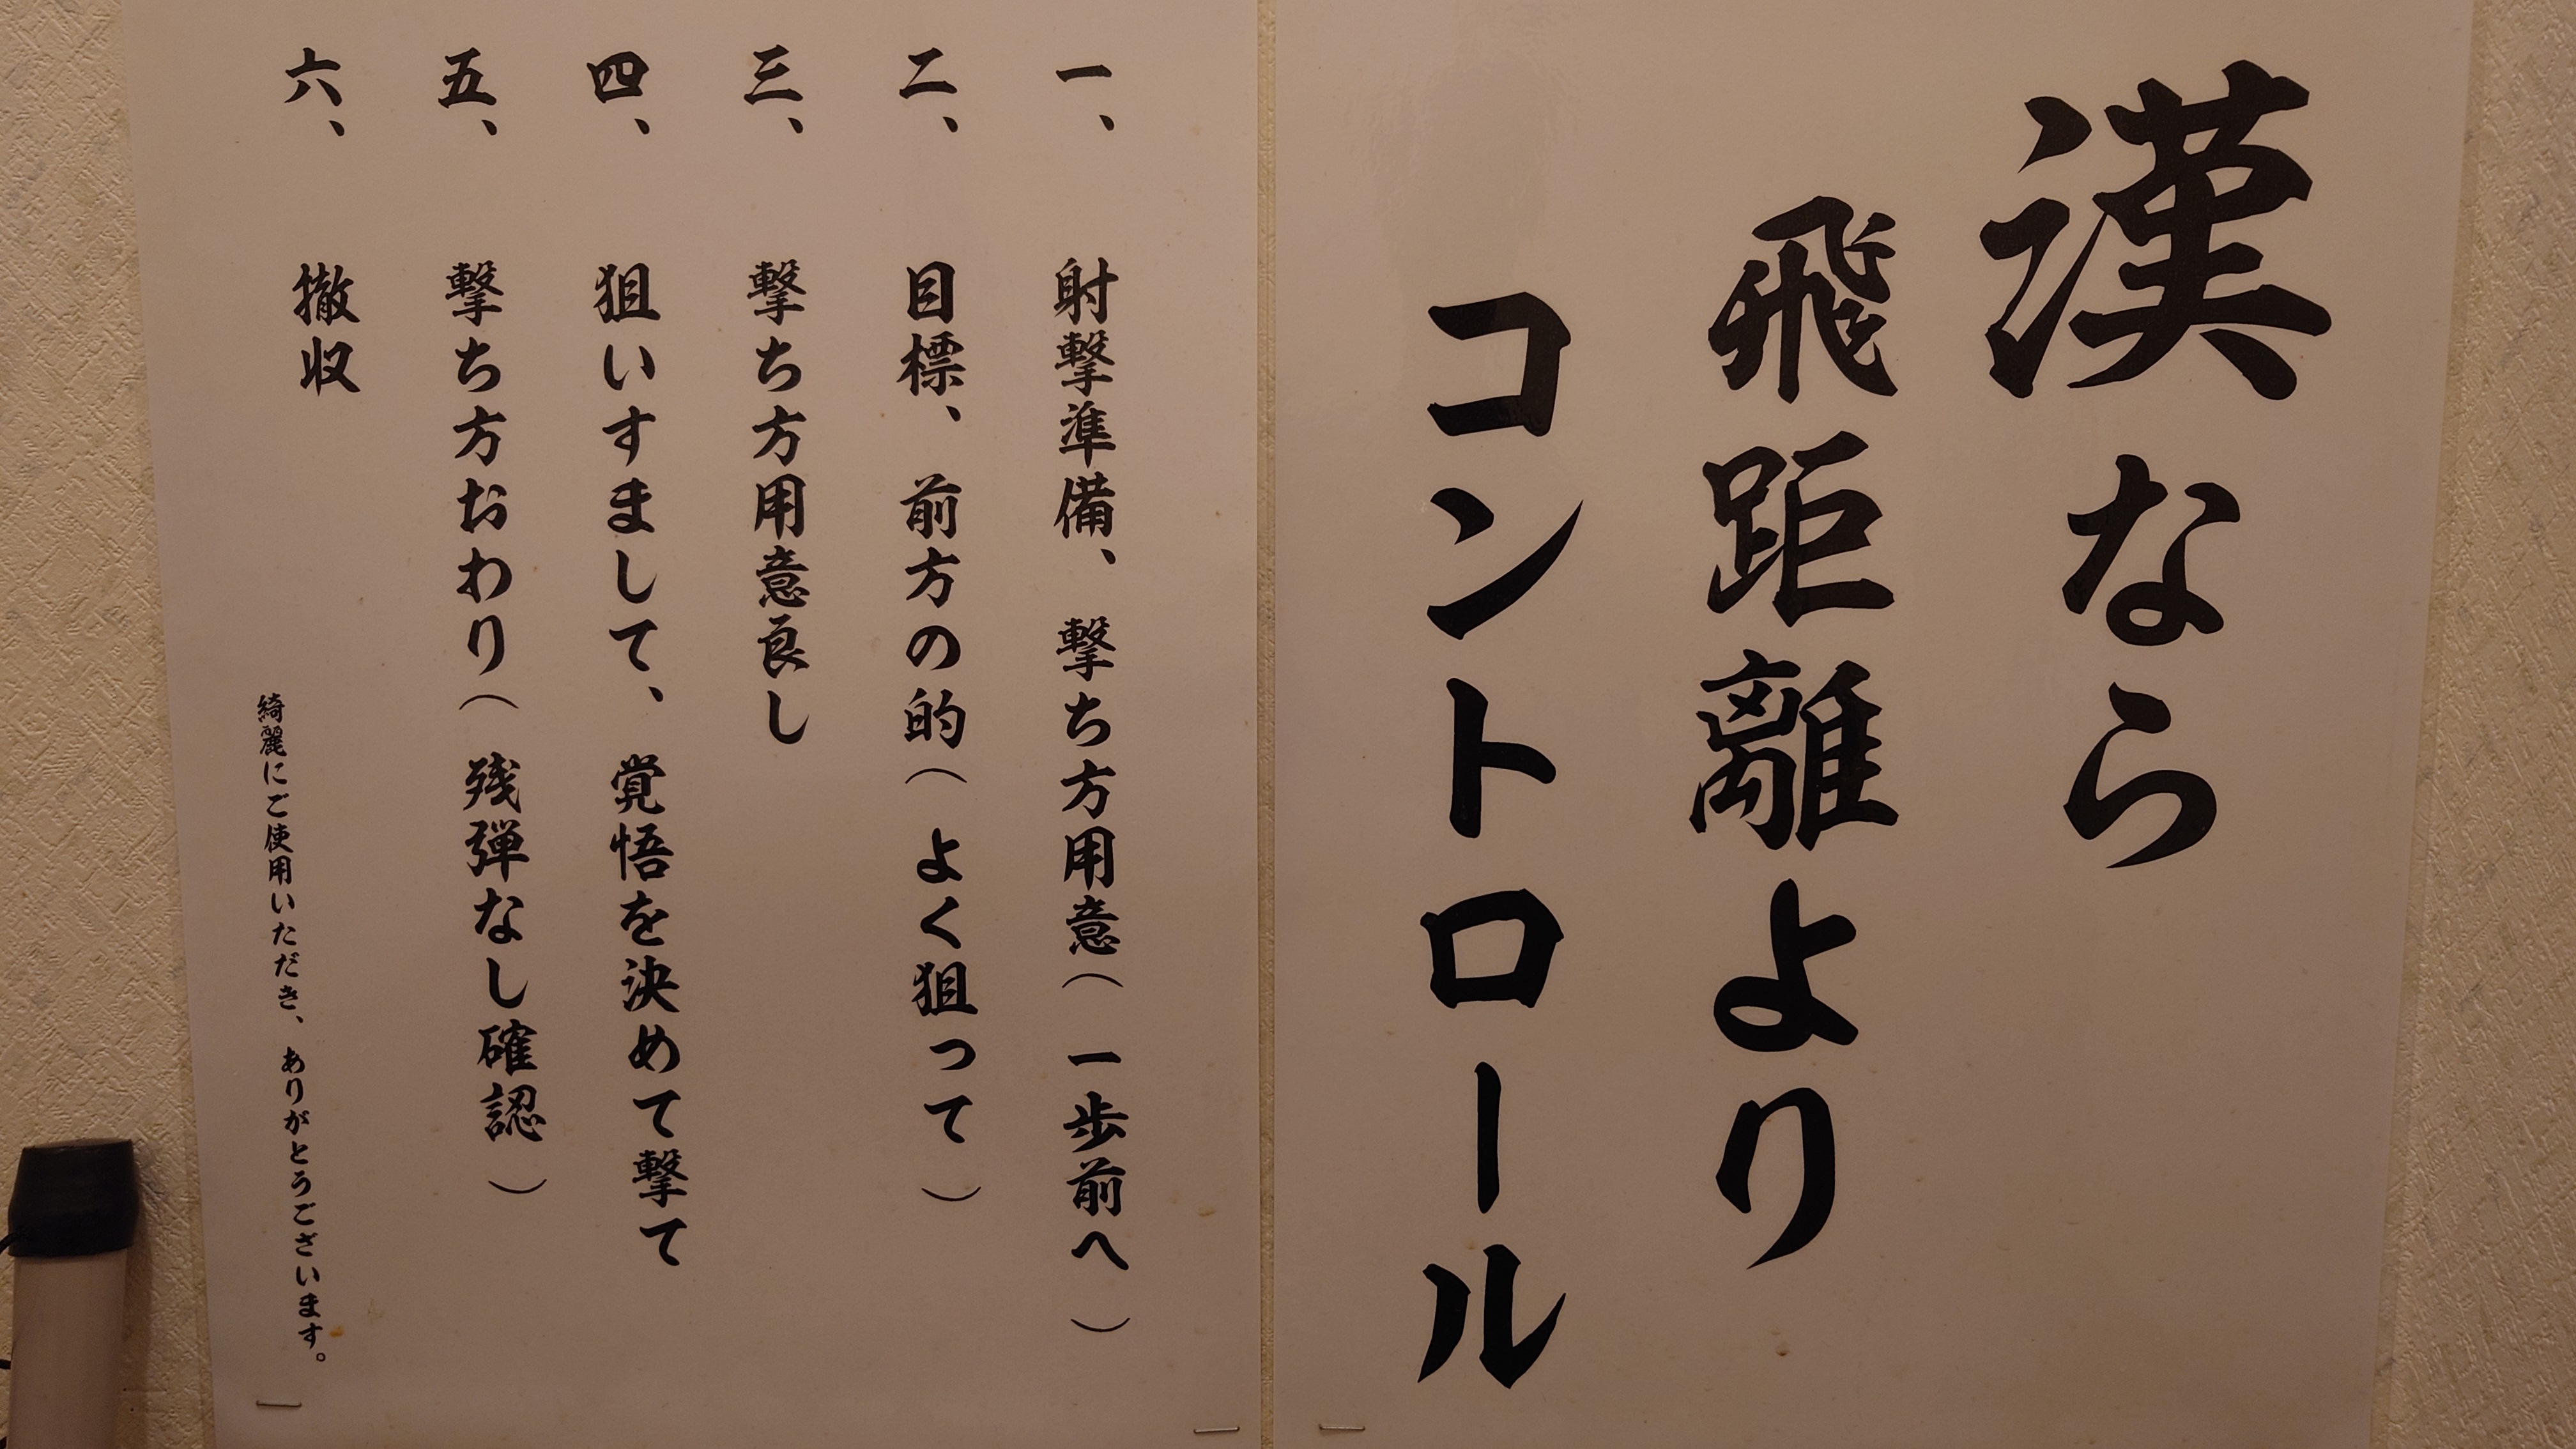 漢なら
飛距離より
コントロール
一、 射撃準備、撃ち方用意（一歩前へ）
二、 目標、前方の的（よく狙って）
三、 撃ち方用意良し
四、 狙いすまして、覚悟を決めて撃て
五、 撃ち方おわり（残弾なし確認）
六、 撤収
綺麗にご使用いただき、ありがとうございます。